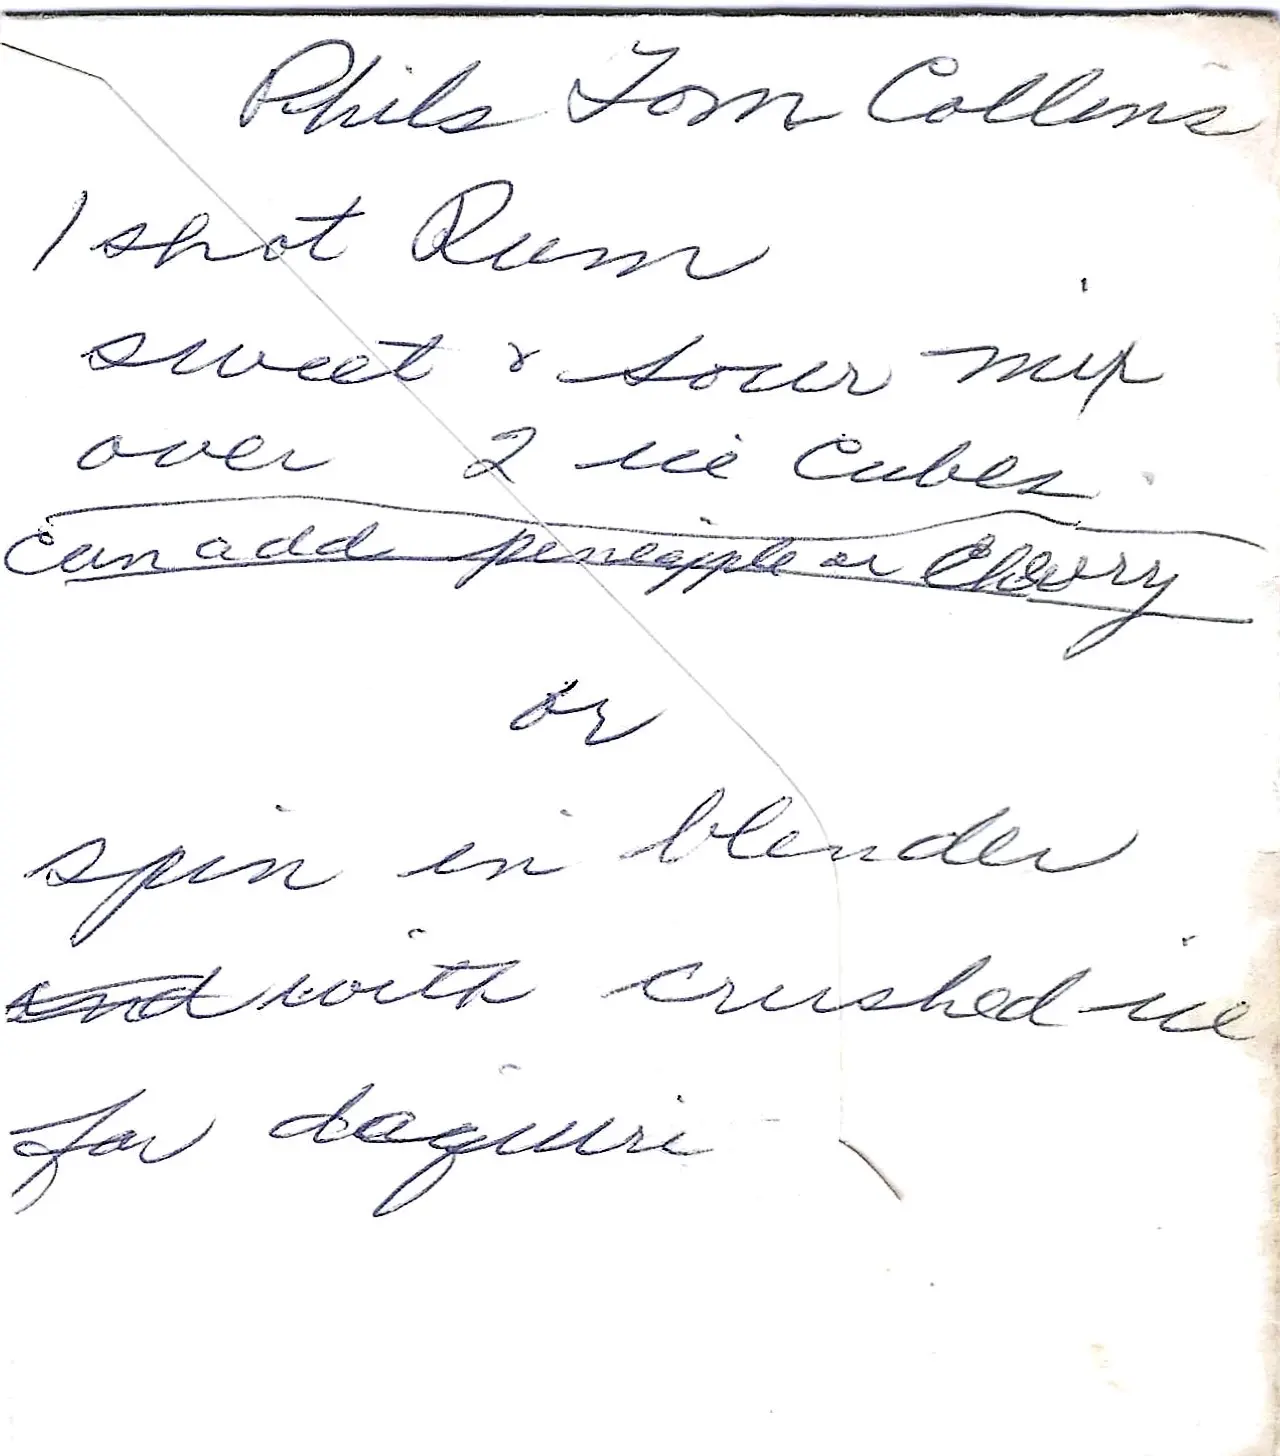 Phils Tom Collins
1 shot Rum
sweet & sour mix
over 2 ice Cubes.
Can add pineapple or Cherry
or
spin in blender
and with crushed ice
for daquiri